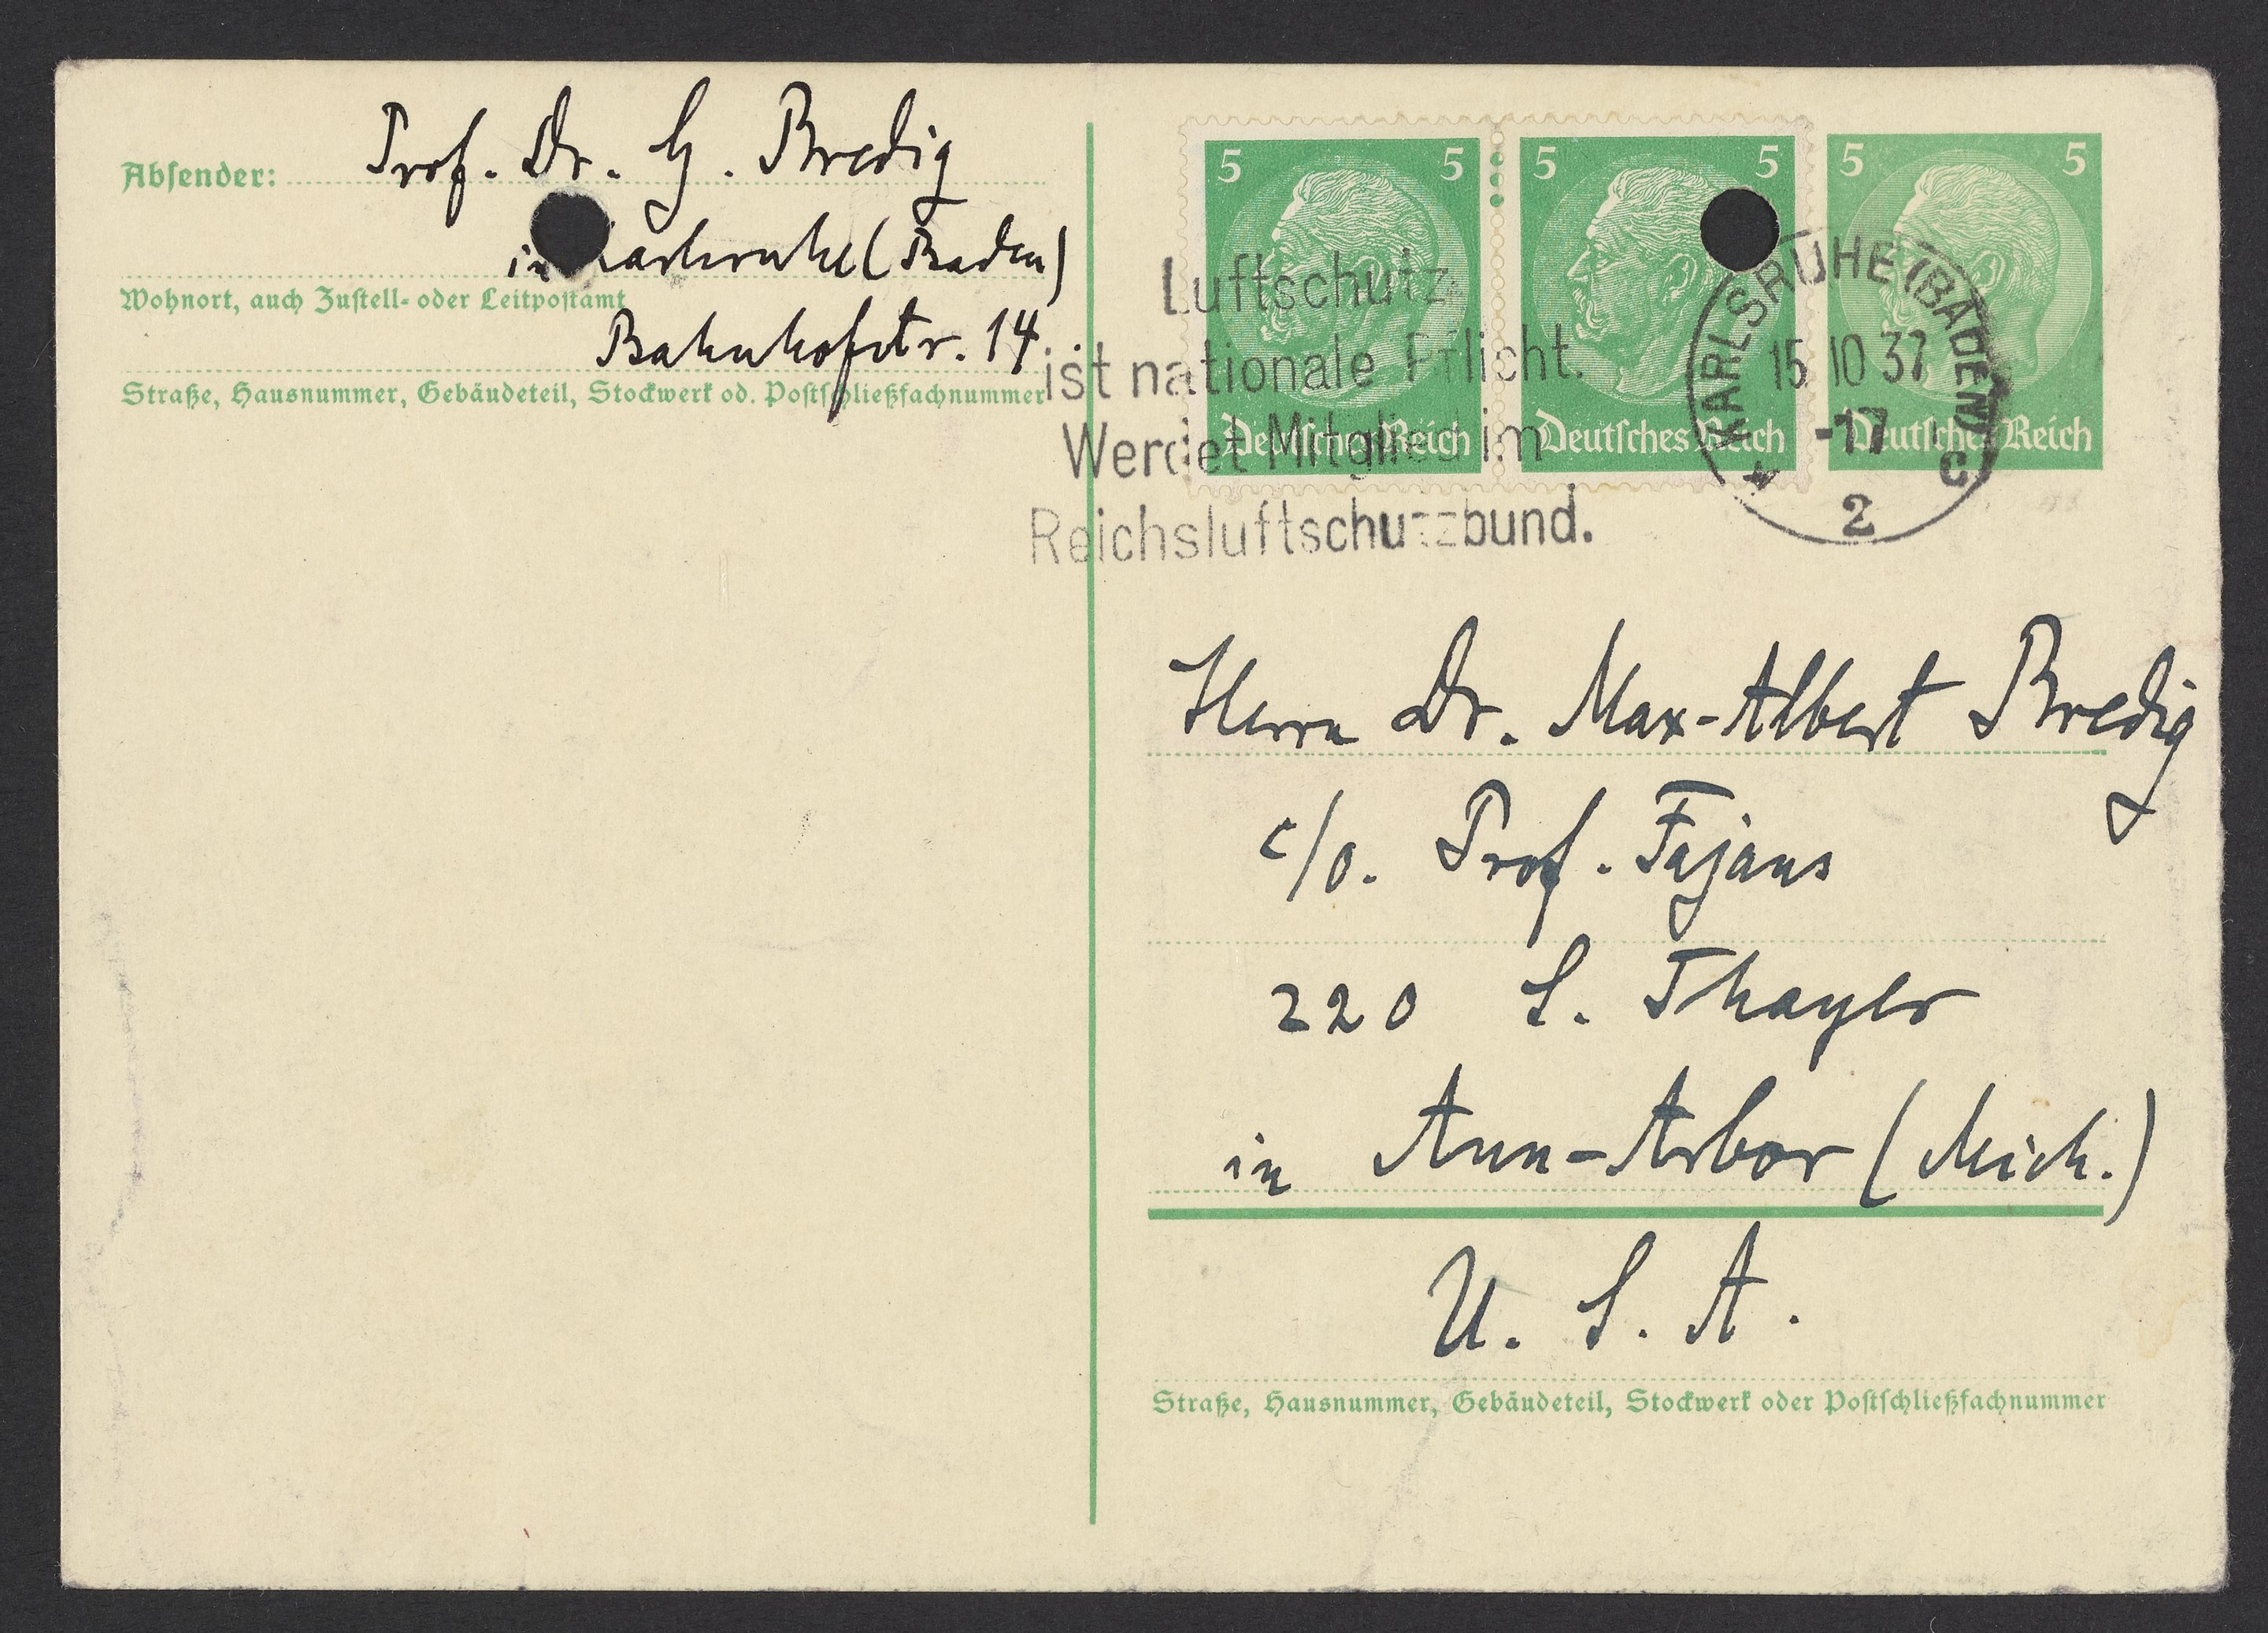 Absender: Prof. Dr. G. Bredig
in Karlsruhe (Baden)
Wohnort, auch Zustell- oder Leitpostamt
Bahnhofstr. 14.
Straße, Hausnummer, Gebäudeteil, Stockwerk od. Postschließfachnummer
5 5 5 5 5 5
Deutsches Reich Deutsches Reich Deutsches Reich
Luftschutz
ist nationale Pflicht.
Werdet Mitglied im
Reichsluftschutzbund.
KARLSRUHE (BADEN)
15.10.37
-17
* 2 c
Herrn Dr. Max-Albert Bredig
c/o. Prof. Fajans
220 S. Thayer
in Ann-Arbor (Mich.)
U. S. A.
Straße, Hausnummer, Gebäudeteil, Stockwerk oder Postschließfachnummer